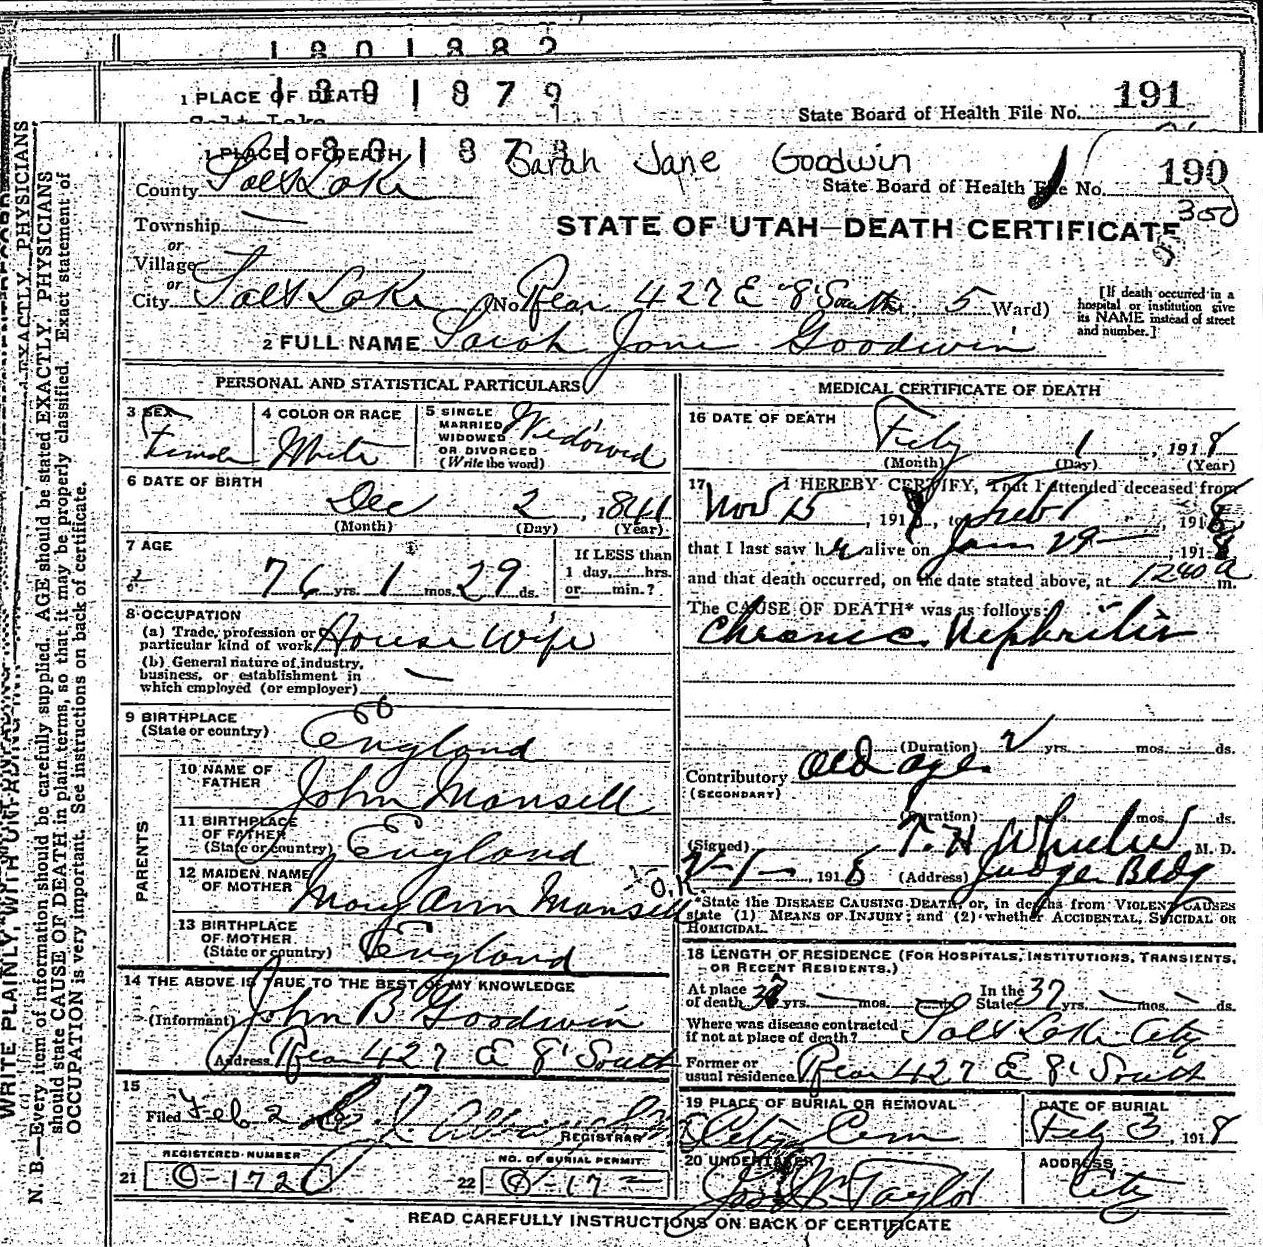 1801882
1801879
1 PLACE OF DEATH
State Board of Health File No. 191
1801878
1 PLACE OF DEATH
Sarah Jane Goodwin
County Salt Lake
State Board of Health File No. 190
300
Township
STATE OF UTAH—DEATH CERTIFICATE
or
Village
or
City Salt Lake (No Rear 427 E 8' South St., 5 Ward)
[If death occurred in a hospital or institution give its NAME instead of street and number.]
2 FULL NAME Sarah Jane Goodwin
PERSONAL AND STATISTICAL PARTICULARS
3 SEX Female
4 COLOR OR RACE White
5 SINGLE MARRIED WIDOWED OR DIVORCED (Write the word) Widowed
6 DATE OF BIRTH
Dec 2, 1841
(Month) (Day) (Year)
7 AGE
76 yrs. 1 mos. 29 ds.
If LESS than 1 day,......hrs. or......min.?
8 OCCUPATION
(a) Trade, profession or particular kind of work House Wife
(b) General nature of industry, business, or establishment in which employed (or employer)
9 BIRTHPLACE (State or country) England
PARENTS
10 NAME OF FATHER John Mansell
11 BIRTHPLACE OF FATHER (State or country) England
12 MAIDEN NAME OF MOTHER Mary Ann Mansell
O.K.
13 BIRTHPLACE OF MOTHER (State or country) England
14 THE ABOVE IS TRUE TO THE BEST OF MY KNOWLEDGE
(Informant) John B Goodwin
Address Rear 427 E 8' South
15
Filed Feb 2
REGISTRAR
REGISTERED NUMBER
21 C-172
NO. OF BURIAL PERMIT
22 C-17
MEDICAL CERTIFICATE OF DEATH
16 DATE OF DEATH
Feby 1, 1918
(Month) (Day) (Year)
17 I HEREBY CERTIFY, That I attended deceased from
Nov 15, 191, to Feb 1, 1918
that I last saw her alive on Jan 29, 1918
and that death occurred, on the date stated above, at 1240 a m.
The CAUSE OF DEATH* was as follows:
Chronic Nephritis
(Duration) 2 yrs. mos. ds.
Contributory (SECONDARY) Old age
(Duration) yrs. mos. ds.
(Signed) T. H Wheeler M. D.
2-1-, 1918 (Address) Judge Bldg
*State the DISEASE CAUSING DEATH, or, in deaths from VIOLENT CAUSES
state (1) MEANS OF INJURY; and (2) whether ACCIDENTAL, SUICIDAL OR
HOMICIDAL.
18 LENGTH OF RESIDENCE (FOR HOSPITALS, INSTITUTIONS, TRANSIENTS,
OR RECENT RESIDENTS.)
At place of death 37 yrs. mos. ds. In the State 37 yrs. mos. ds.
Where was disease contracted if not at place of death? Salt Lake City
Former or usual residence Rear 427 E 8' South
19 PLACE OF BURIAL OR REMOVAL City Cem
DATE OF BURIAL Feb 3, 1918
20 UNDERTAKER Jos Wm Taylor
ADDRESS City
READ CAREFULLY INSTRUCTIONS ON BACK OF CERTIFICATE
N. B.—Every item of information should be carefully supplied. AGE should be stated EXACTLY. PHYSICIANS
should state CAUSE OF DEATH in plain terms, so that it may be properly classified. Exact statement of
OCCUPATION is very important. See instructions on back of certificate.